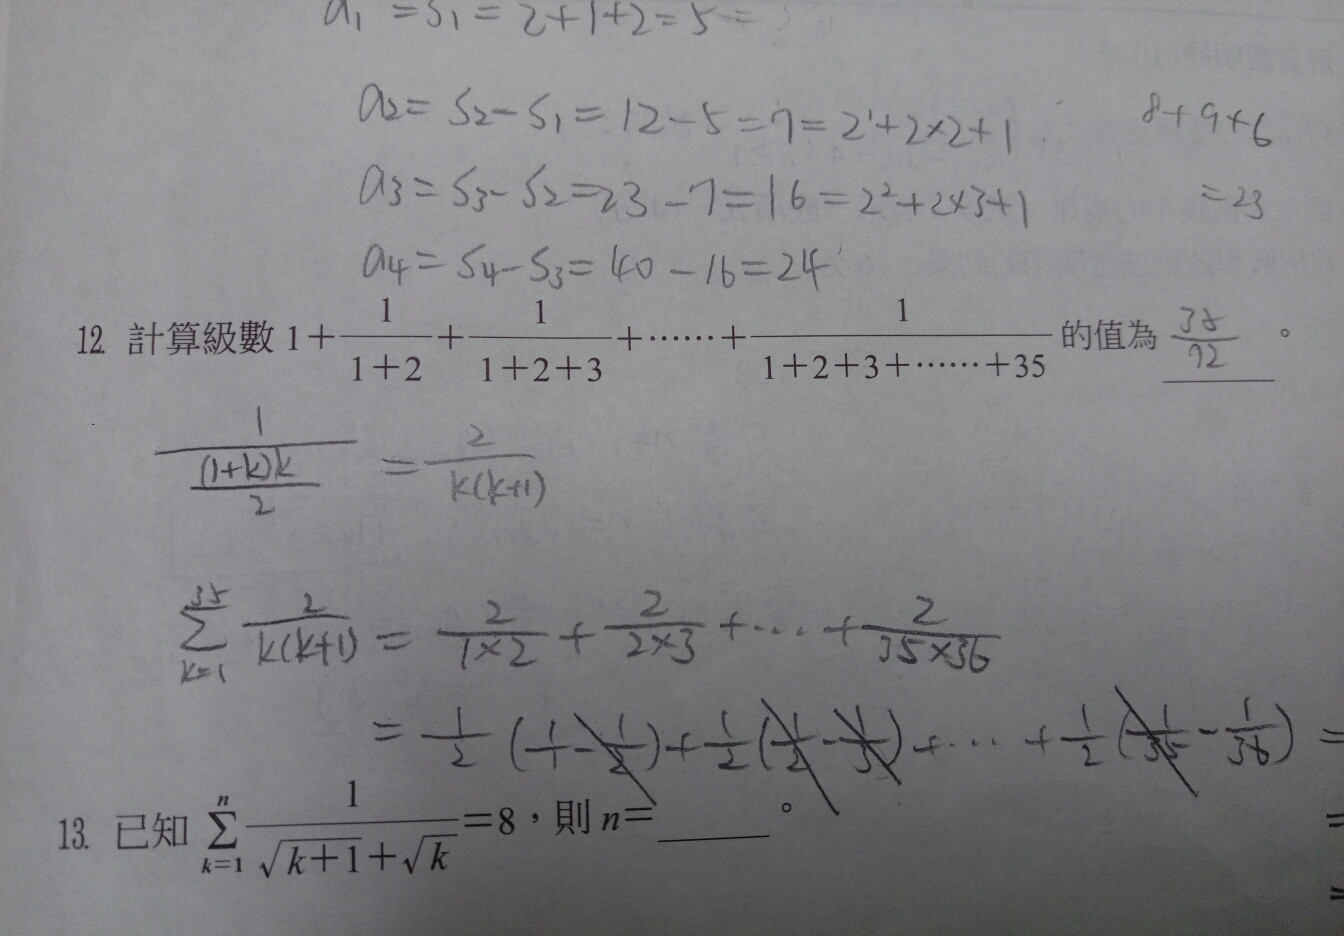 a₁ = S₁ = 2+1+2 = 5 =
a₂ = S₂ - S₁ = 12 - 5 = 7 = 2¹+2×2+1
8+9+6
a₃ = S₃ - S₂ = 23 - 7 = 16 = 2²+2×3+1
= 23
a₄ = S₄ - S₃ = 40 - 16 = 24
12. 計算級數 1 + 1/(1+2) + 1/(1+2+3) + …… + 1/(1+2+3+……+35) 的值為 35/72 。
1/((1+k)k/2) = 2/(k(k+1))
∑_{k=1}^{35} 2/(k(k+1)) = 2/(1×2) + 2/(2×3) + … + 2/(35×36)
= 1/2 (1/1 - 1/2) + 1/2 (1/2 - 1/3) + … + 1/2 (1/35 - 1/36) =
13. 已知 ∑_{k=1}^{n} 1/(√(k+1)+√k) = 8，則 n = ______ 。
=
=